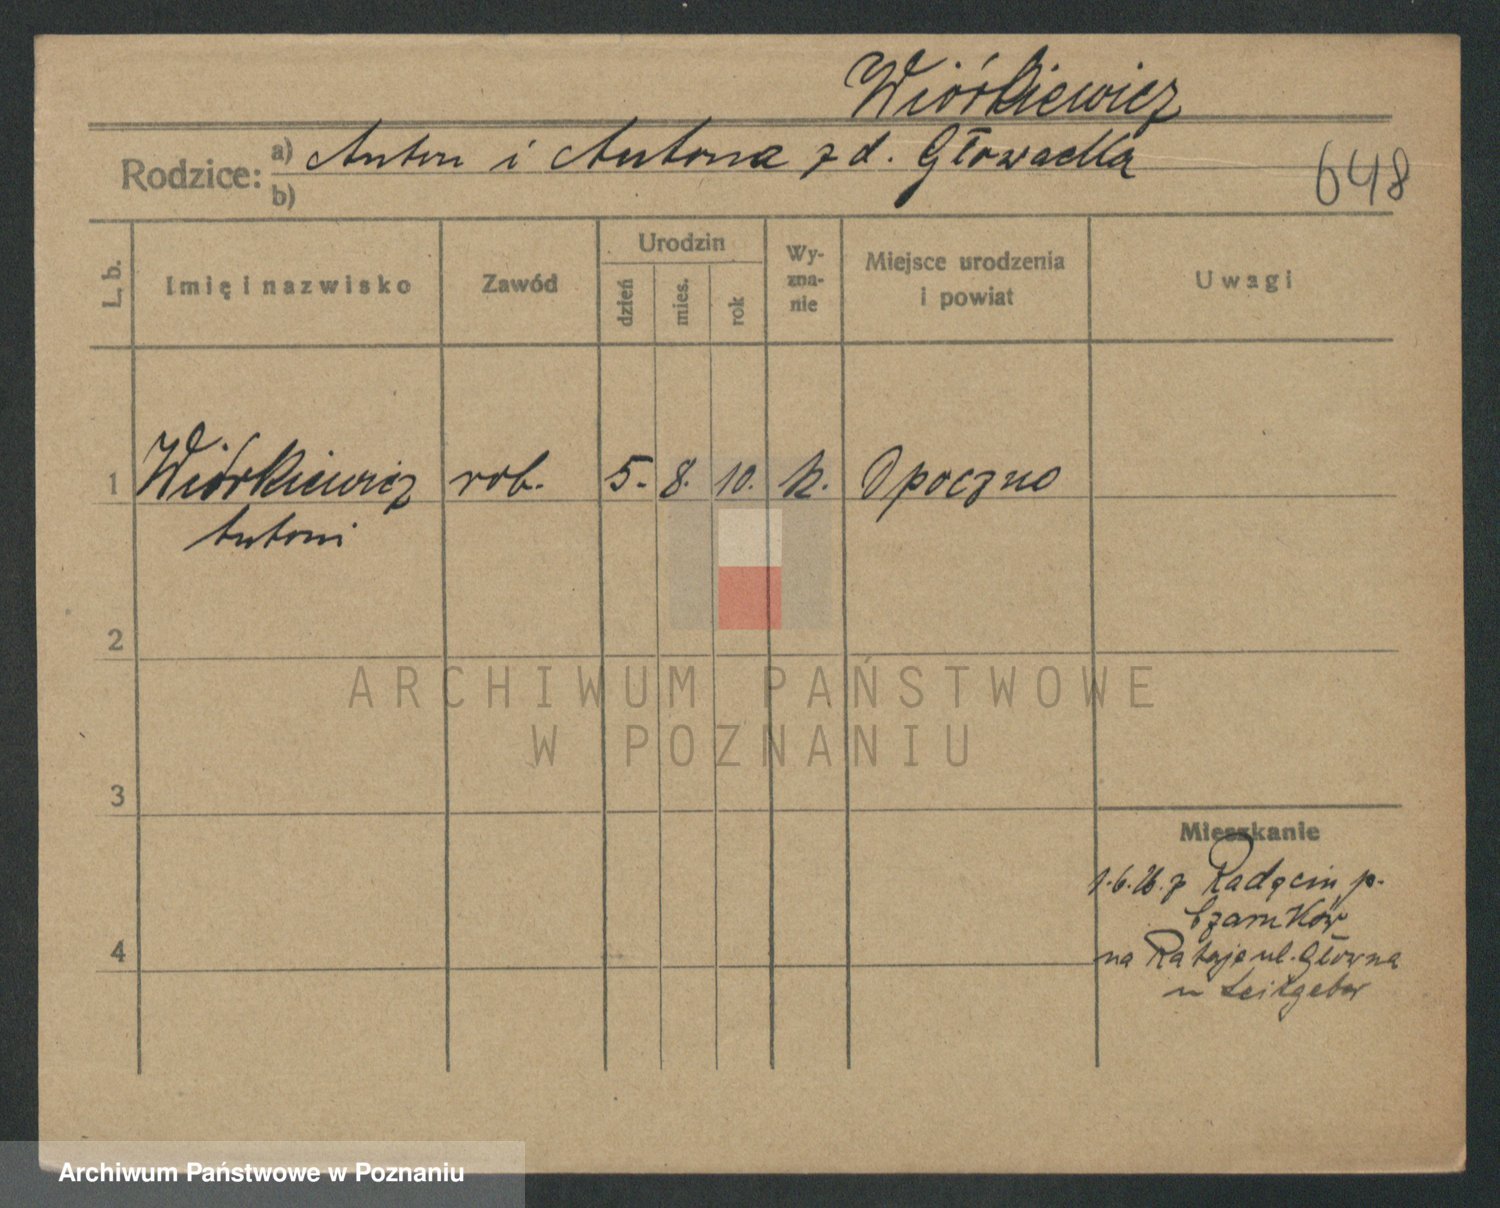 Wiórkiewicz
Rodzice:
a) Anton i Antona z d. Głowacka
b)
648
L. b.
Imię i nazwisko
Zawód
Urodzin
dzień
mies.
rok
Wy-
zna-
nie
Miejsce urodzenia
i powiat
Uwagi
1 Wiórkiewicz rob. 5. 8. 10. k. Opoczno
Antoni
2
ARCHIWUM PAŃSTWOWE
W POZNANIU
3
Mieszkanie
1.6.26. z Radęcin p.
Czarnków
4
na Rataje ul. Główna
u Leitgeber
Archiwum Państwowe w Poznaniu